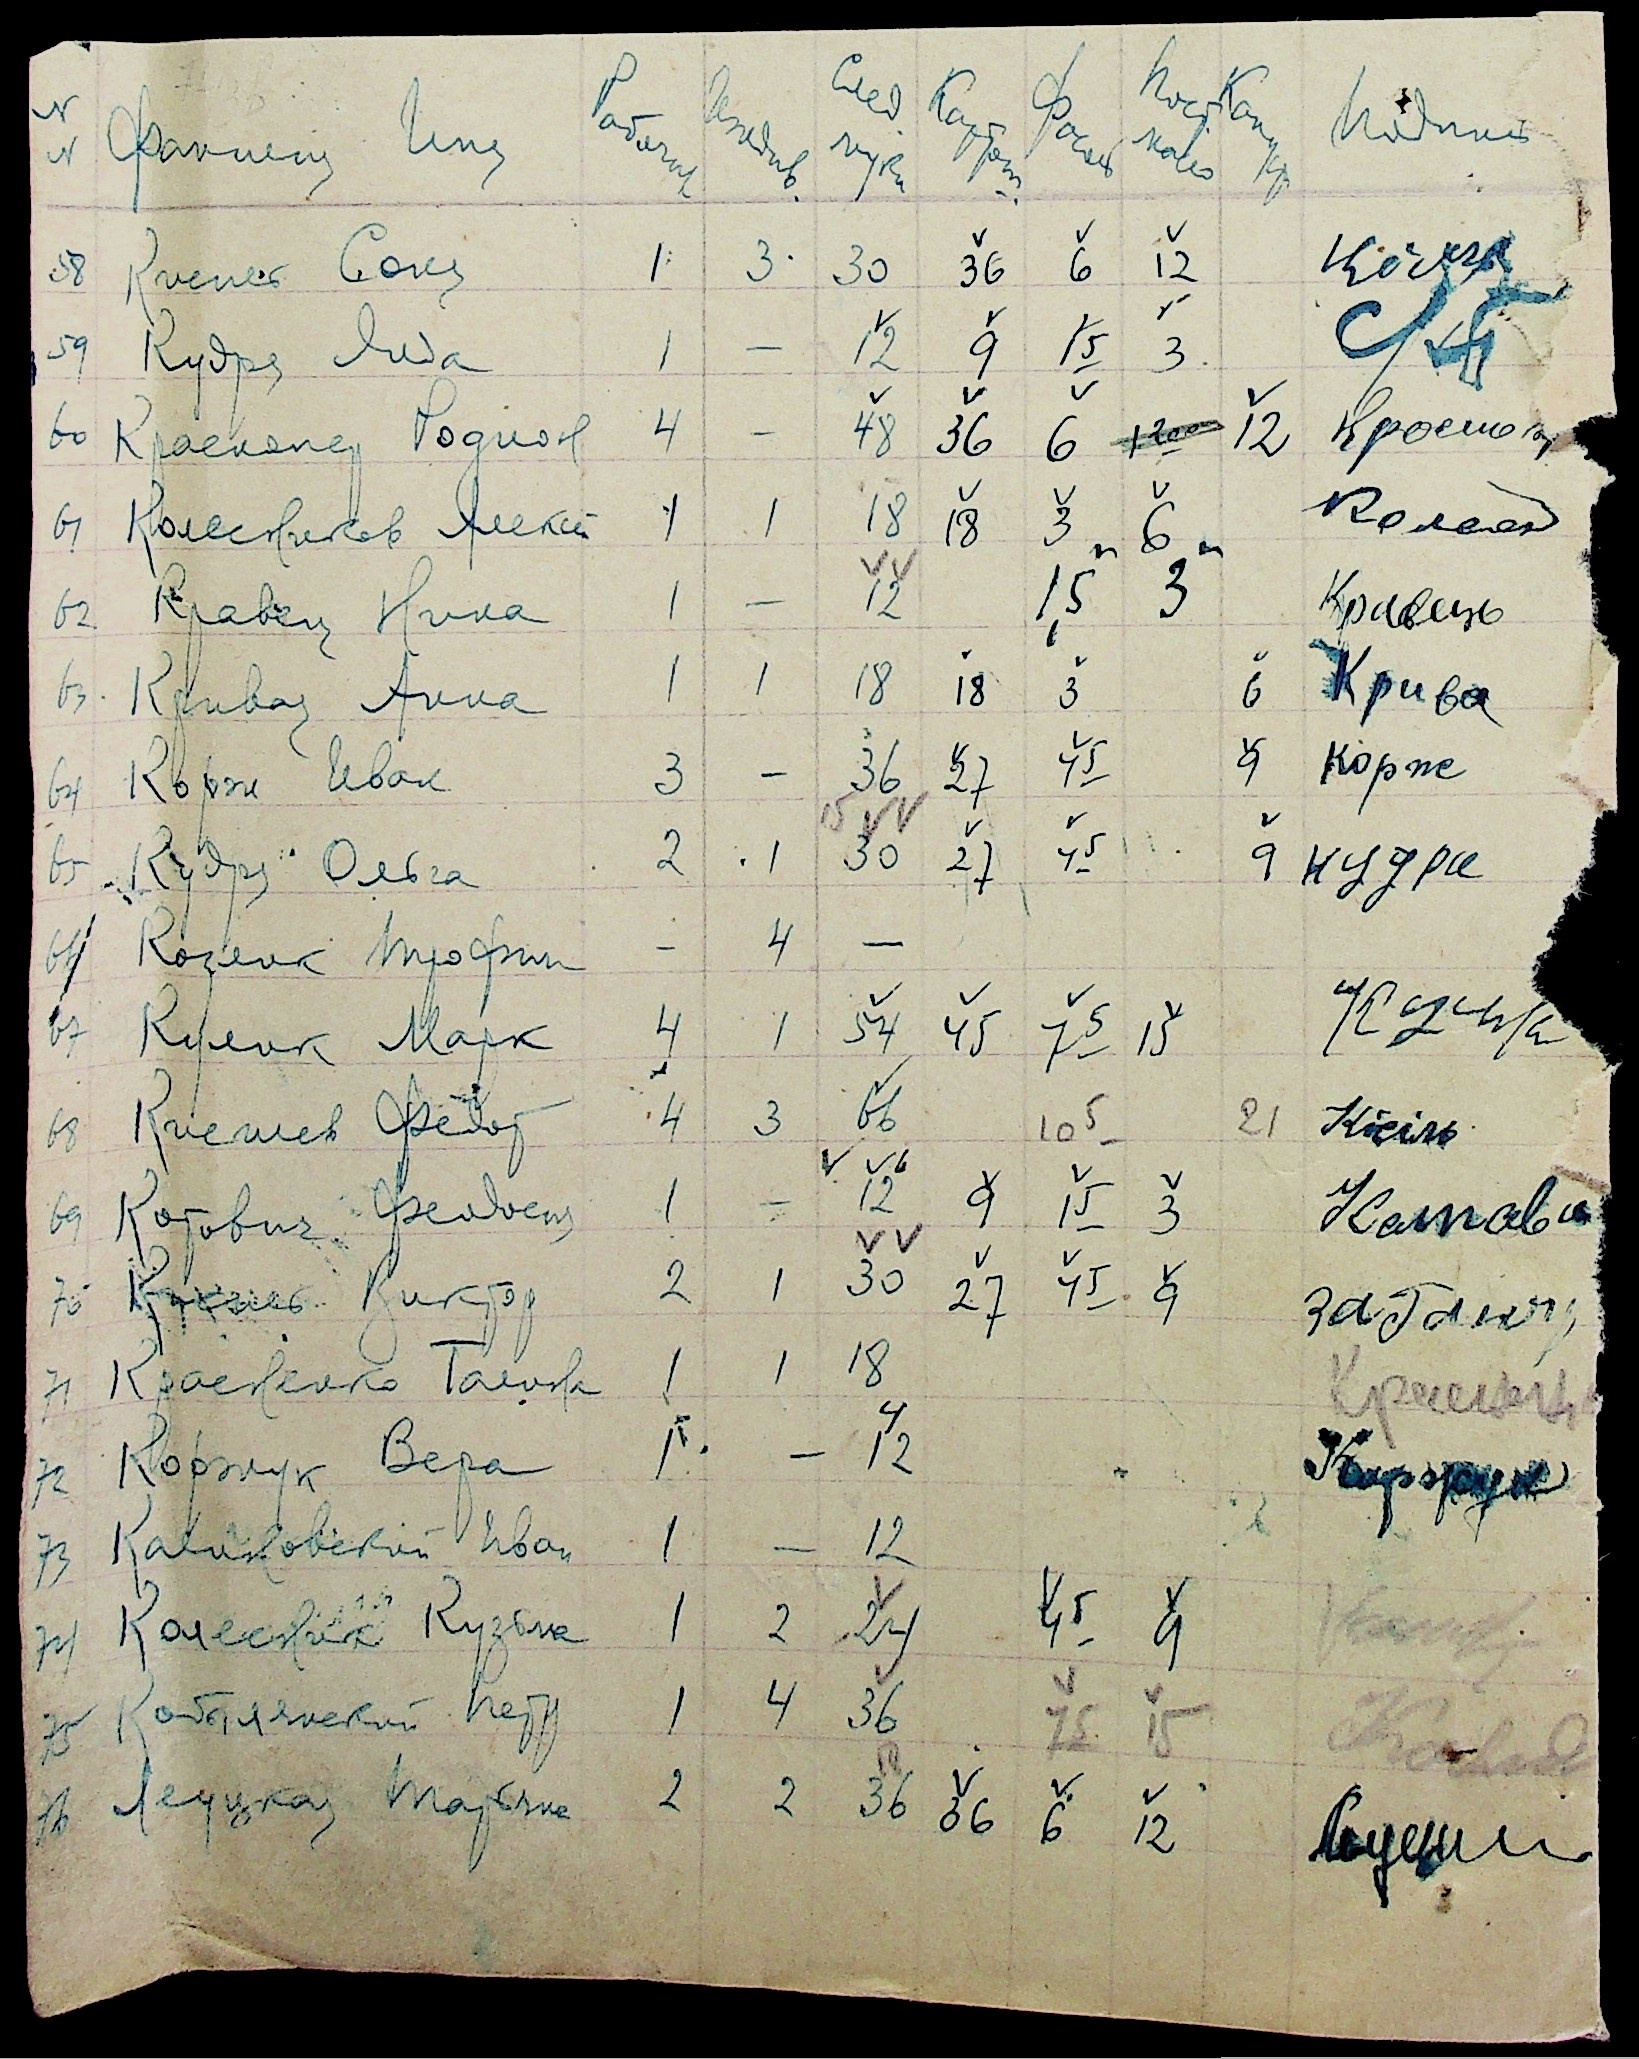 № № Фамилия Имя Рабочих Иждив. След муки Картоф. Фасоль Пост масло Кап кр Подпись
58 Киселев Соня 1 3 30 36 6 12
59 Кудря Лида 1 — 12 9 15 3
60 Краснопер Родион 4 — 48 36 6 12
61 Колесников Алексей 1 1 18 18 3 6
62 Кравец Нина 1 — 12 15 3 Кравець
63 Кривая Анна 1 1 18 18 3 6 Крива
64 Корж Иван 3 — 36 27 45 9 Корже
65 Кудря Ольга 2 1 15 30 27 45 9 кудря
66 Козенюк Трофим — 4 —
67 Куленюк Марк 4 1 54 45 75 15
68 Киселев Федот 4 3 66 105 21 Кісіль
69 Котович Феодосия 1 — 12 9 15 3 Катави
70 Виктор 2 1 30 27 45 9
71 Красненко Галина 1 1 18
72 Коржук Вера 1 — 12 Коржук
73 Калиновский Иван 1 — 12
74 Колесник Кузьма 1 2 24 45 9
75 Кобылянский Петр 1 4 36 75 15
76 Луцкая Татьяна 2 2 36 36 6 12